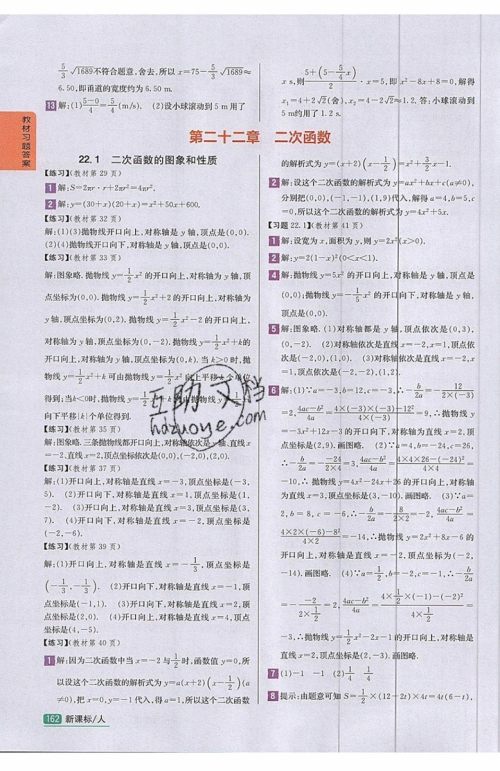 教材习题答案
5/3√1689不符合题意,舍去,所以 x=75-5/3√1689≈
6.50,即甬道的宽度约为 6.50 m.
13 解:(1)(5-0)/4=5/4(m/s). (2)设小球滚动到 5 m 用了
第二十二章 二次函数
22.1 二次函数的图象和性质
【练习】(教材第 29 页)
1 解:S=2πr·r+2πr²=4πr².
2 解:y=(30+x)(20+x)=x²+50x+600.
【练习】(教材第 32 页)
解:(1)(3)抛物线开口向上,对称轴是 y 轴,顶点是(0,0).
(2)(4)抛物线开口向下,对称轴是 y 轴,顶点是(0,0).
【练习】(教材第 33 页)
解:图象略. 抛物线 y=1/2x² 的开口向上,对称轴为 y 轴,顶
点坐标为(0,0). 抛物线 y=1/2x²+2 的开口向上,对称轴为
y 轴,顶点坐标为(0,2). 抛物线 y=1/2x²-2 的开口向上,
对称轴为 y 轴,顶点坐标为(0,-2). 抛物线 y=1/2x²+k的
开口向上,对称轴为 y 轴,顶点坐标为(0,k). 当 k>0 时,抛
物线 y=1/2x²+k 可由抛物线 y=1/2x² 向上平移 k 个单位
得到;当k<0时,抛物线
向下平移|k|个单位得到.
【练习】(教材第 35 页)
解:图象略. 三条抛物线都开口向上,对称轴依次是 y 轴,直线 x
=-2,直线 x=2,顶点依次是(0,0),(-2,0),(2,0).
【练习】(教材第 37 页)
解:(1)开口向上,对称轴是直线 x=-3,顶点坐标是(-3,
5). (2)开口向下,对称轴是直线 x=1,顶点坐标是(1,
-2). (3)开口向上,对称轴是直线 x=3,顶点坐标是(3,
7). (4)开口向下,对称轴是直线 x=-2,顶点坐标是
(-2,-6).
【练习】(教材第 39 页)
解:(1)开口向上,对称轴是直线 x=-1/3,顶点坐标是
(-1/3,-1/3). (2)开口向下,对称轴是直线 x=-1,顶
点坐标是(-1,1). (3)开口向下,对称轴是直线 x=2,顶
点坐标是(2,0). (4)开口向上,对称轴是直线 x=4,顶点
坐标是(4,-5).
【练习】(教材第 40 页)
1 解:因为二次函数中当 x=-2 与1/2时,函数值 y=0,所
以设这个二次函数的解析式为 y=a(x+2)(x-1/2)(a
≠0),把 x=0,y=-1 代入,得 a=1,所以这个二次函数
162 新课标/人
x s,则(5+(5-5/4x))/2·x=5,即 x²-8x+8=0,解得
x₁=4+2√2(舍),x₂=4-2√2≈1.2. 答:小球滚动到
5 m约用了 1.2 s.
的解析式为 y=(x+2)(x-1/2)=x²+3/2x-1.
2 解:设这个二次函数的解析式为 y=ax²+bx+c(a≠0),
分别把(0,0),(-1,-1),(1,9)代入,解得 a=4,b=5,c
=0,所以这个二次函数的解析式为 y=4x²+5x.
【习题 22.1】(教材第 41 页)
1 解:设宽为 x,面积为 y,则 y=2x²(x>0).
2 解:y=2(1-x)²(0<x<1).
4 解:抛物线 y=5x² 的开口向上,对称轴是 y 轴,顶点是
(0,0);抛物线 y=-1/5x² 的开口向下,对称轴是 y 轴,顶
点是(0,0).
5 解:图象略. (1)对称轴都是 y 轴,顶点依次是(0,3),
(0,-2). (2)对称轴依次是直线 x=-2,x=1,顶点依
次是(-2,0),(1,0). (3)对称轴依次是直线 x=-2,x=
1,顶点依次是(-2,-2),(1,2).
6 解:(1)∵a=-3,b=12,c=-3,∴-b/2a=-12/(2×(-3))
=2,(4ac-b²)/4a=(4×(-3)×(-3)-12²)/(4×(-3))=9,∴抛物线 y
=-3x²+12x-3 的开口向下,对称轴为直线 x=2,顶点
坐标是(2,9). 画图略. (2)∵a=4,b=-24,c=26,
∴-b/2a=-(-24)/(2×4)=3,(4ac-b²)/4a=(4×4×26-(-24)²)/(4×4)=
-10,∴ 抛物线 y=4x²-24x+26 的开口向上,对称轴
为直线 x=3,顶点坐标是(3,-10). 画图略. (3)∵a=
2,b=8,c=-6,∴-b/2a=-8/(2×2)=-2,(4ac-b²)/4a=
(4×2×(-6)-8²)/(4×2)=-14,∴抛物线 y=2x²+8x-6 的
开口向上,对称轴是直线 x=-2,顶点坐标为(-2,
-14). 画图略. (4)∵a=1/2,b=-2,c=-1,∴-b/2a=
-(-2)/(2×1/2)=2,(4ac-b²)/4a=(4×1/2×(-1)-(-2)²)/(4×1/2)=
-3,∴抛物线 y=1/2x²-2x-1 的开口向上,对称轴是
直线 x=2,顶点坐标是(2,-3). 画图略.
7 (1)-1 -1 (2)1/4 1/4
8 提示:由题意可知 S=1/2×(12-2t)×4t=4t(6-t),
互助文档
hazuoye.com